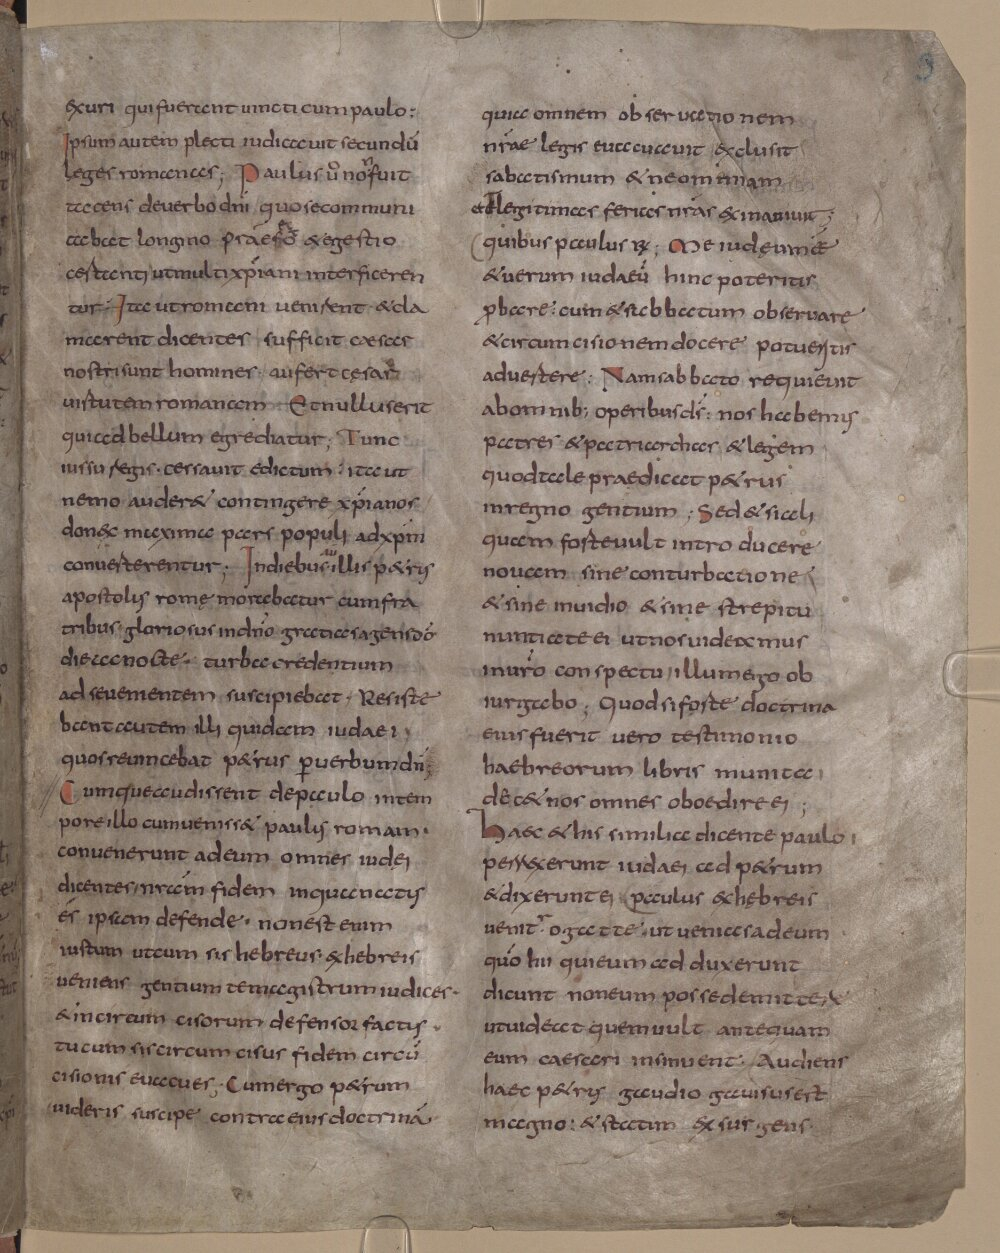 exuri qui fuerant uincti cum paulo:
Ipsum autem plecti iudicauit secundũ
leges romanas; Paulus ũ no fuit
tacens de uerbo dñi quo se communi
cabat longino praefecto & egestio
cesteanti ut multi xp̃iani interficeren
tur. Ita ut romani uenirent & cla
marent dicentes sufficit caesar
nostri sunt homines. aufert cesar
uirtutem romanam. Et nullus erit
qui ad bellum egrediatur; Tunc
iussu regis. cessauit edictum: ita ut
nemo auder& contingere xp̃ianos
donec maxima pars populi ad xp̃m
conuerterentur; In diebus illis p&rus
apostolus romę morabatur cum fra
tribus. gloriosus in dño gratias agens dõ
die ac nocte. turba credentium
ad seuenientem suscipiebat. Resiste
bant autem illi quidam iudaei
quos reuincebat p&rus p uerbum dñi;
Cumque audissent de paulo in tem
pore illo cum ueniss& paulus romam.
conuenerunt ad eum omnes iudei
dicentes. nr̃am fidem in qua natus
es ipsam defende. non est enim
iustum ut cum sis hebreus. & hebreis
ueniens gentium te magistrum iudices.
& incircumcisorum defensor factus.
tu cum sis circumcisus fidem circũ
cisionis euacues. Cum ergo p&rum
uideris suscipe contra eius doctrinã
quia omnem obseruationem
nr̃ae legis euacuauit exclusit
sabatismum & neomeniam
& legitimas ferias nr̃as exinaniuit;
quibus paulus R; Me iudeum eẽ
& uerum iudaeũ hinc poteritis
pbare: cum & sabbatum obseruare
& circumcisionem docere potuistis
aduertere. Nam sabbato requieuit
ab omnib; operibus dš: nos habemus
patres & patriarchas & legem
quod tale praedicat p&rus
in regno gentium; Sed & si ali
quam forte uult introducere
nouam sine conturbatione
& sine inuidio & sine strepitu
nuntiate ei ut nos uideamus
in uro conspectu, illum ego ob
iurgabo; Quod si forte doctrina
eius fuerit uero testimonio
haebreorum libris munita
dec& nos omnes oboedire ei;
Haec & his similia dicente paulo
perrexerunt iudaei ad p&rum
& dixerunt ei paulus ex hebreis
uenit. rogat te. ut uenias ad eum
quo hii qui eum adduxerunt
dicunt non eum posse demittere
ut uideat quem uult antequam
eum caesari insinuent. Audiens
haec p&rus gaudio gauisus est
magno: & statim exsurgens